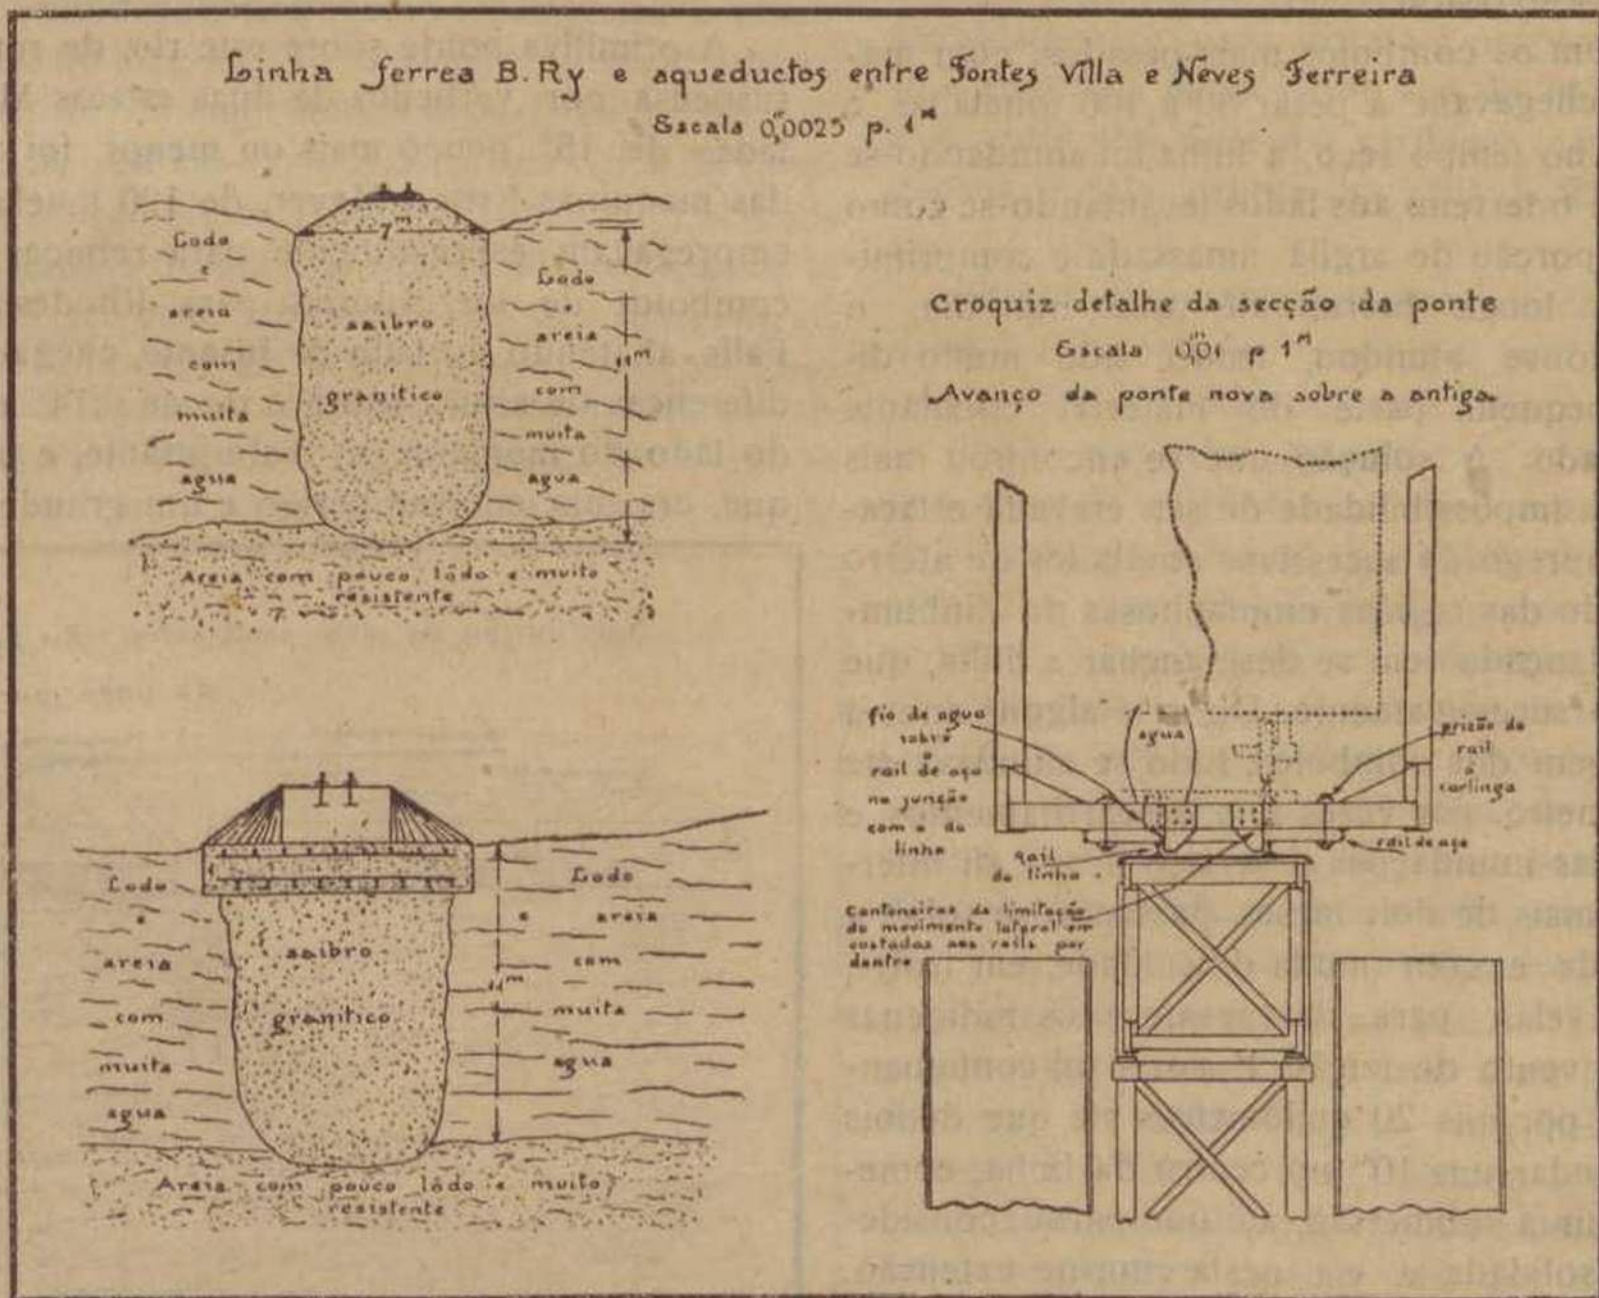 Linha ferrea B. Ry e aqueductos entre Fontes Villa e Neves Ferreira
Escala 0,ᵐ0025 p. 1ᵐ
7ᵐ
Lodo
e
areia
com
muita
agua
saibro
granitico
Lodo
e
areia
com
muita
agua
11ᵐ
Areia com pouco lôdo e muito
resistente
Lodo
e
areia
com
muita
agua
saibro
granitico
11ᵐ
Lodo
e
areia
com
muita
agua
Areia com pouco lôdo e muito
resistente
Croquiz detalhe da secção da ponte
Escala 0,ᵐ01 p 1ᵐ
Avanço da ponte nova sobre a antiga
fio de agua
sobre
o
rail de aço
na junção
com o da
linha
agua
prizão do
rail
á
carlinga
rail
da linha
rail de aço
Cantoneiras de limitação
do movimento lateral en
costadas aos rails por
dentro